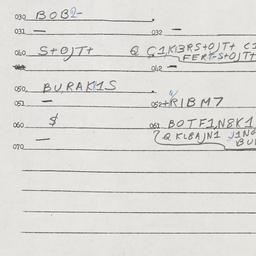 030 BOB2-
031 — 032 —
040 S+OJT+ Q C1K1BRS+OJT+ C1
FERT-S+OJT+
042 —
050 BURAK1S
051 — 052 +RIBM7
060 $ 061 BOTF1N8K1
? Q KLBAJN1 J1NG
BU
070